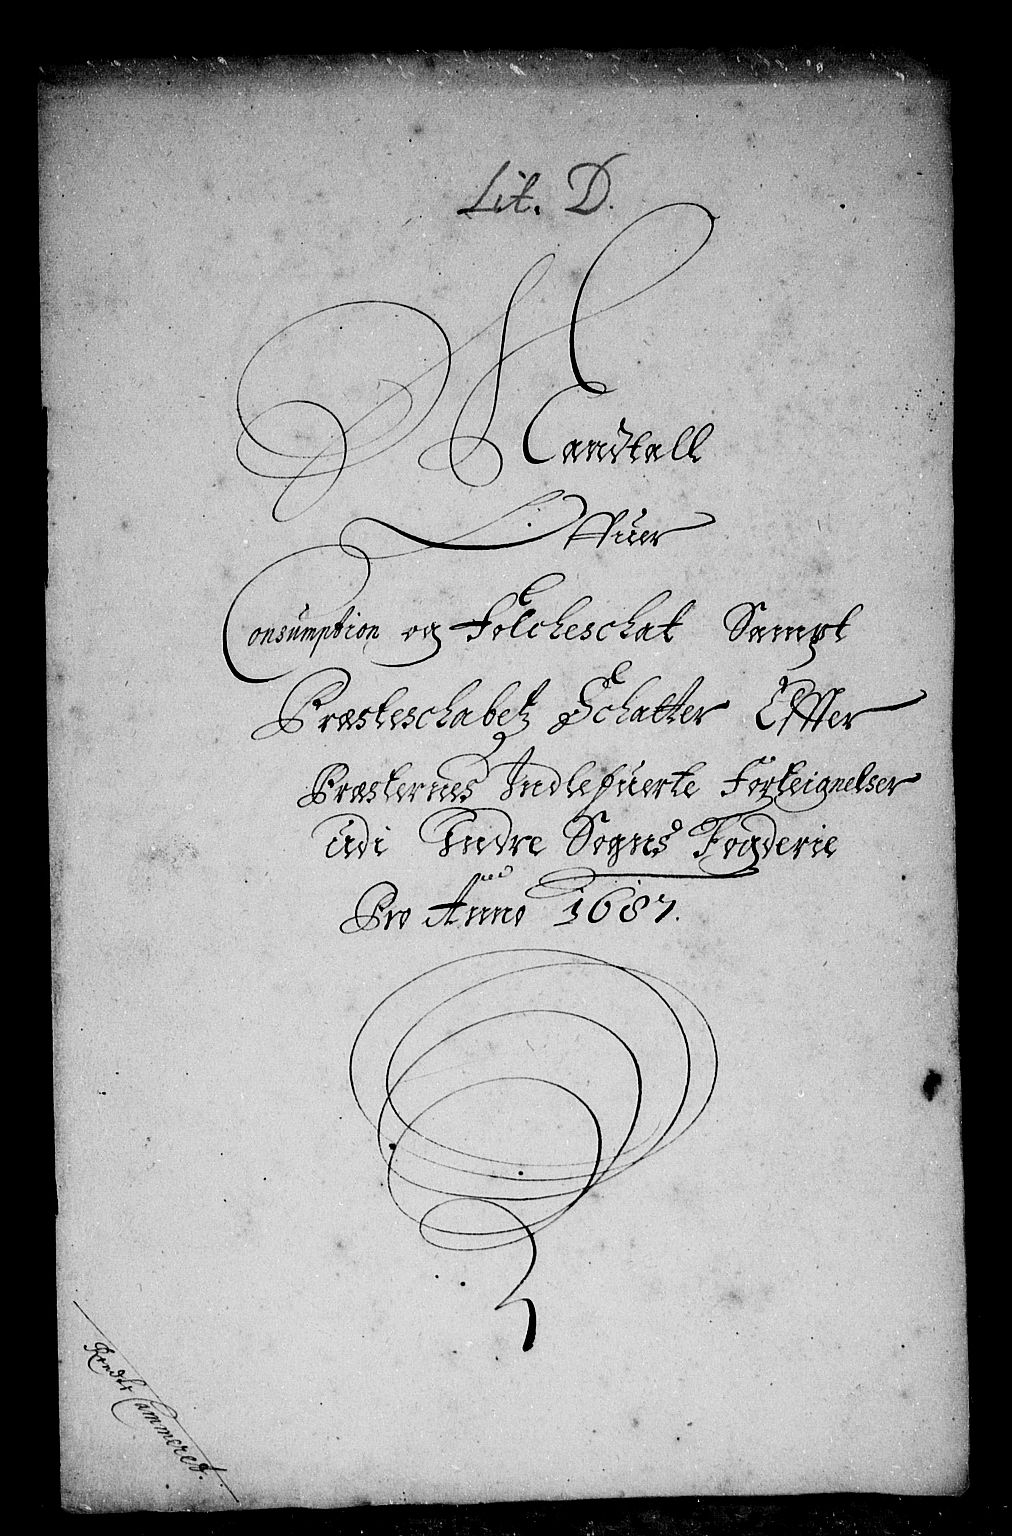 Lit. D.
Mandtall
Offuer
Consumption og Folcheschat Sampt
Præsteschabetz Schatter Effter
Præsternes Indlefuerte Forteignelser
udi Indre Sogns Fogderie
Pro Anno 1687.
Rendte Cammeret.